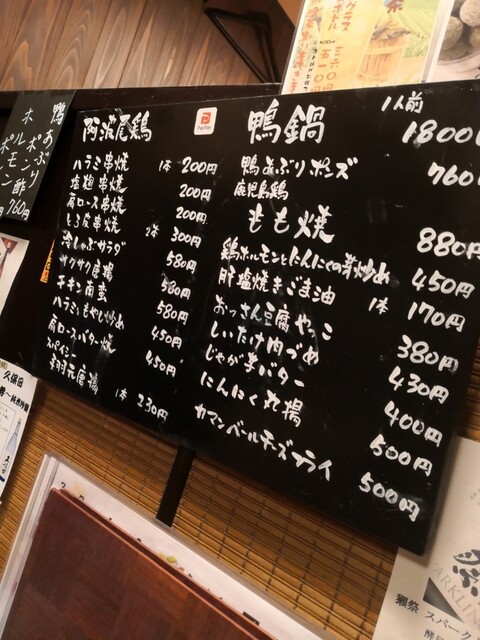 阿波尾鶏
ハラミ串焼 1本 200円
塩麹串焼 200円
肩ロース串焼 200円
とろ皮串焼 2本 300円
冷しゃぶサラダ 580円
サクサク唐揚 580円
チキン南蛮 580円
ハラミともやし炒め 450円
肩ロースバター焼 450円
スパイシー
手羽元唐揚 1本 230円
PayPay
鴨鍋 1人前 1800円
鴨あぶりポンズ 760円
鹿児島鶏
もも焼 880円
鶏ホルモンとにんにくの芽炒め 450円
肝塩焼きごま油 1本 170円
おっさん豆腐やっこ 380円
しいたけ肉づめ 430円
じゃが芋バター 400円
にんにく丸揚 500円
カマンベールチーズフライ 500円
鴨
あぶり
ポン酢
760円
久保田
獺祭 スパーク